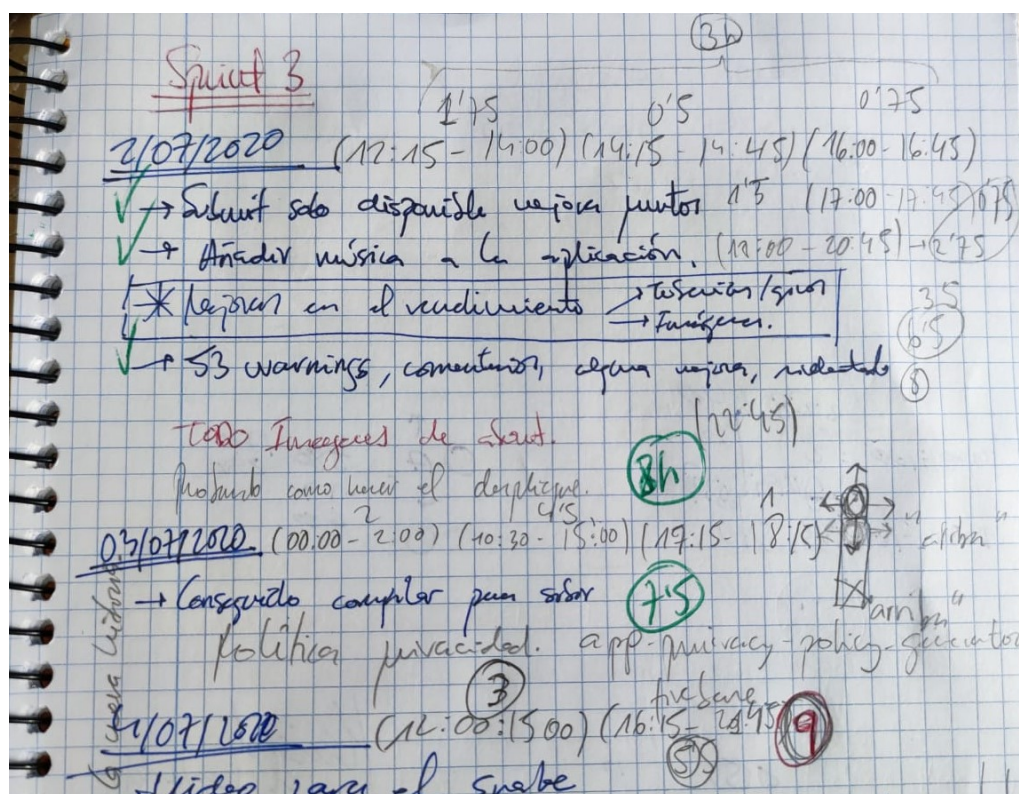 3h
Sprint 3
1'75 0'5 0'75
2/07/2020 (12:15 - 14:00) (14:15 - 14:45) (16:00 - 16:45)
→ Submit solo disponible mejora puntos 1'5 (17:00 - 17:45) 0'75
→ Añadir música a la aplicación. (18:00 - 20:45) → 2'75
* Mejoras en el rendimiento →
→ Imágenes.
3'5
6'5
→ 53 warnings, comentarios, alguna mejora, indentado 8
(22:45)
TODO Imágenes de about.
Probando como hacer el despliegue. 8h
2 4'5 1
03/07/2020 (00:00 - 2:00) (10:30 - 15:00) (17:15 - 18:15)
→ Conseguido compilar para subir 7'5
"arriba"
Política privacidad. app-privacy-policy-generator
3 firebase
4/07/2020 (12:00 : 15:00) (16:15 - ) 9
5'5
Video para el